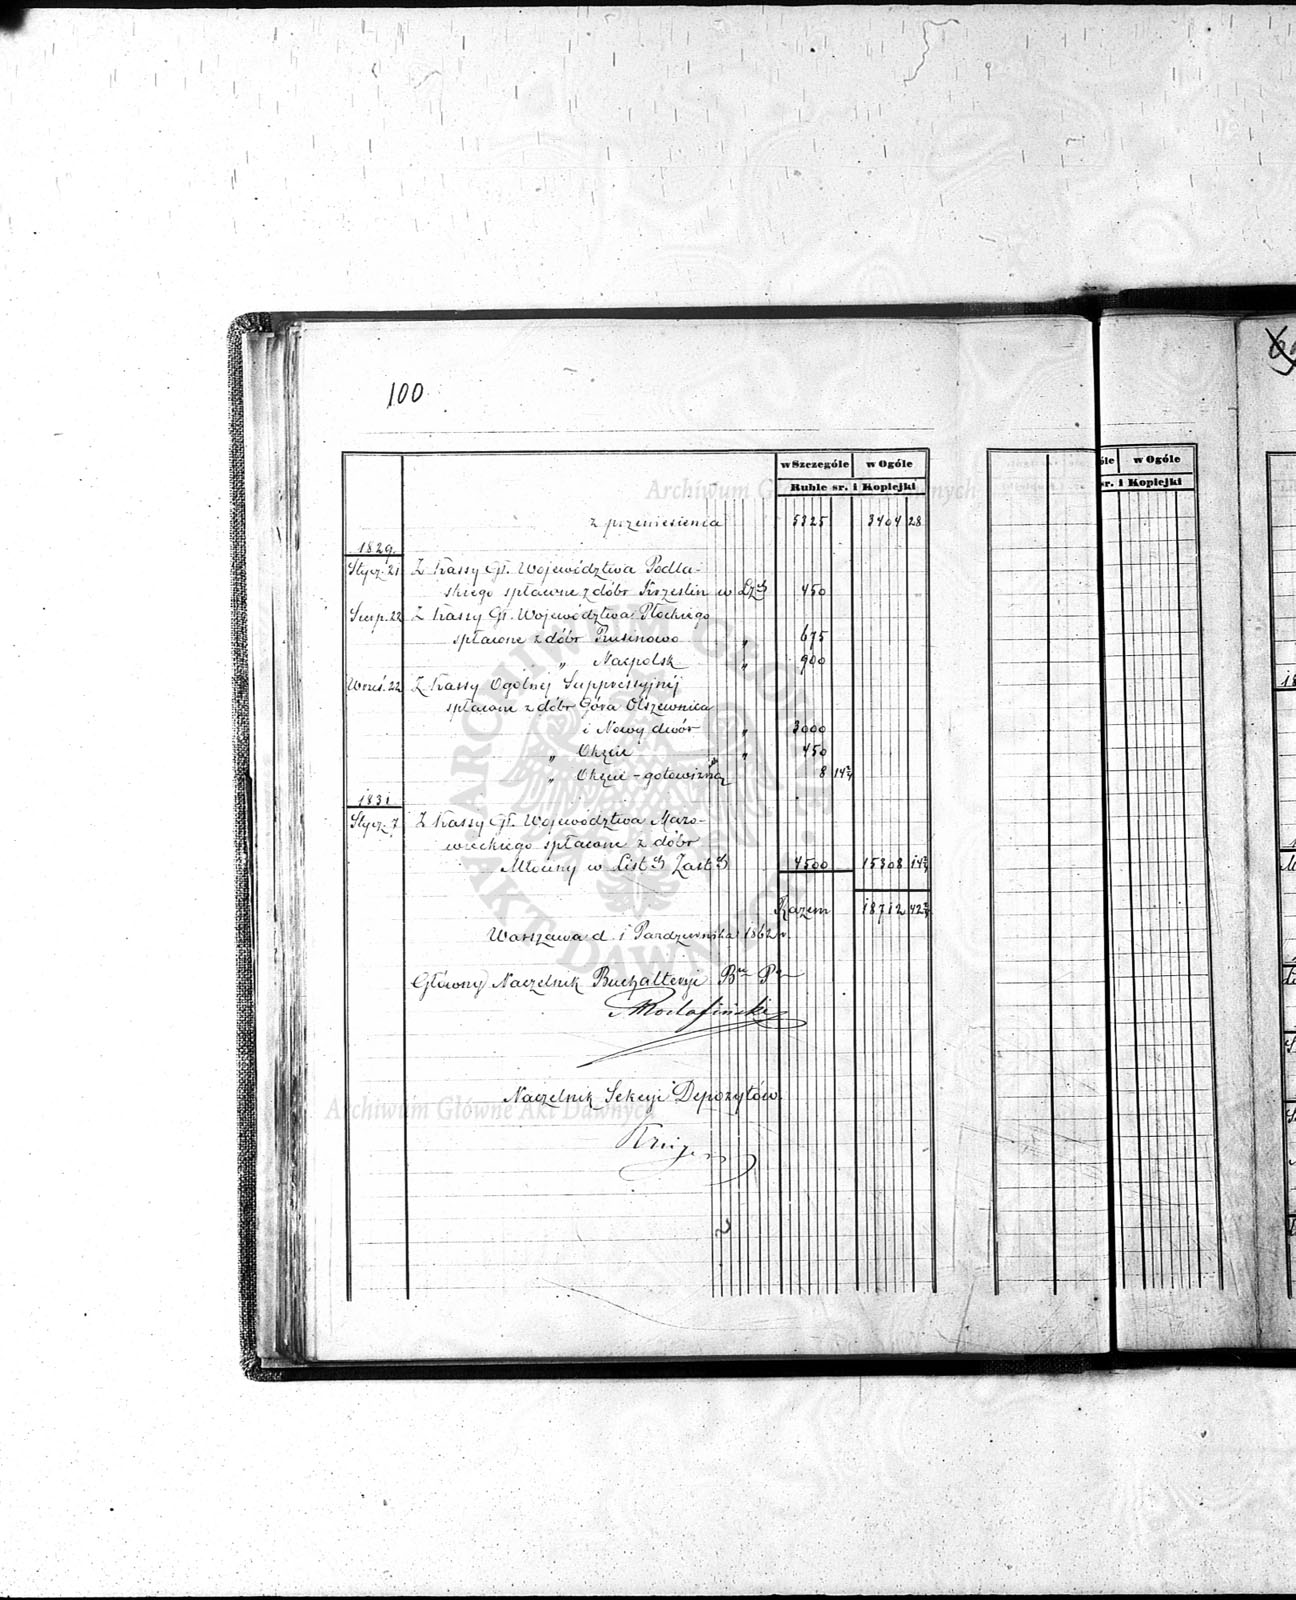 100
w Szczególe w Ogóle
Ruble sr. i Kopiejki
z przeniesienia 5325 3404 28
1829.
Stycz. 21 Z Kassy Gł. Województwa Podla-
skiego spłacone z dóbr Krześlin w Lzch 450
Sierp. 22 Z Kassy Gł. Województwa Płockiego
spłacone z dóbr Prusinowo " 675
" Nacpolsk " 900
Wrześ. 22 Z Kassy Ogólnej Suppressyjnej
spłacone z dóbr Góra Olszewnica
i Nowy dwór " 3000
" Okęcie " 450
" Okęcie - gotowizną 8 14
1831
Stycz. 7 Z Kassy Gł. Województwa Mazo-
wieckiego spłacone z dóbr
Młociny w List. Zast. 4500 15308 14
Razem 18712 42
Warszawa d. 1 Października 1862 r.
Główny Naczelnik Buchalteryi
Naczelnik Sekcyi Depozytów
w Ogóle
sr. i Kopiejki
Archiwum Główne Akt Dawnych
ARCHIWUM GŁÓWNE AKT DAWNYCH
Archiwum Główne Akt Dawnych